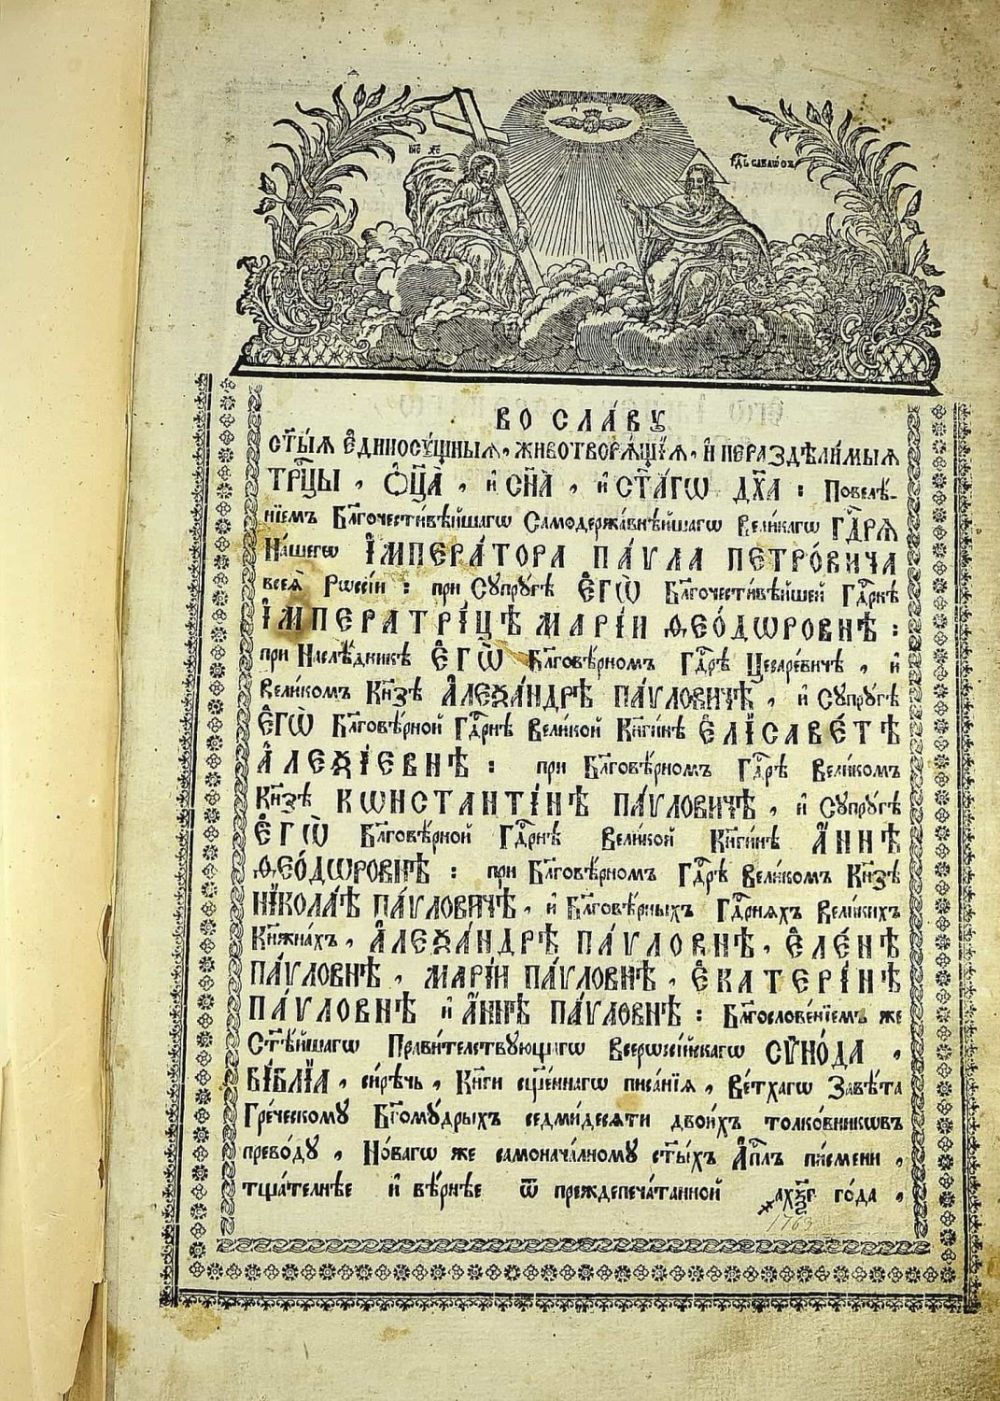 І҃ИС ХС
Г҃ДЬ САВАѠѲЪ
ВО СЛА́ВꙊ
СТ҃ЫѦ Є҆ДИНОСꙊ́ЩНЫѦ, ЖИВОТВОРѦ́ЩЇѦ, И҆ НЕРАЗДѢЛИ́МЫѦ
ТРЦ҃Ы, Ѻ҆Ц҃А̀, и҆ СН҃А, и҆ СТА҃ГѠ ДХ҃А: Повелѣ́-
нїемъ Бл҃гочести́вѣйшагѡ Самодержа́внѣйшагѡ Вели́кагѡ Гдⷭ҇РѦ
На́шегѡ І҆МПЕРА́ТОРА ПА́ѴЛА ПЕТРО́ВИЧА
всеѧ̀ Рѡссі́и: при Сꙋпрꙋ́гѣ Є҆ГѠ̀ Бл҃гочести́вѣйшей Гдⷭ҇рнѣ
І҆МПЕРАТРІ́ЦѢ МАРІ́И ѲЕО́ДѠРОВНѢ:
при Наслѣ́дникѣ Є҆ГѠ̀ Бл҃говѣ́рномъ Гдⷭ҇рѣ Цесаре́вичѣ, и҆
Вели́комъ Кнѧ҃зѣ А҆ЛЕѮА́НДРѢ ПА́ѴЛОВИЧѢ, и҆ Сꙋпрꙋ́гѣ
Є҆ГѠ̀ Бл҃говѣ́рной Гдⷭ҇рнѣ Вели́кой Кн҃ги́нѣ Є҆ЛІСАВЕ́ТѢ
А҆ЛЕѮІ́ЕВНѢ: при Бл҃говѣ́рномъ Гдⷭ҇рѣ Вели́комъ
Кнѧ҃зѣ КѠНСТАНТІ́НѢ ПА́ѴЛОВИЧѢ, и҆ Сꙋпрꙋ́гѣ
Є҆ГѠ̀ Бл҃говѣ́рной Гдⷭ҇рнѣ Вели́кой Кн҃ги́нѣ А҆́ННѢ
ѲЕО́ДѠРОВНѢ: при Бл҃говѣ́рномъ Гдⷭ҇рѣ Вели́комъ Кнѧ҃зѣ
НІКОЛА́Ѣ ПА́ѴЛОВИЧѢ, и҆ Бл҃говѣ́рныхъ Гдⷭ҇рнѧхъ Вели́кихъ
Кнѧжна́хъ, А҆ЛЕѮА́НДРѢ ПА́ѴЛОВНѢ, Є҆ЛЕ́НѢ
ПА́ѴЛОВНѢ, МАРІ́И ПА́ѴЛОВНѢ, Є҆КАТЕРІ́НѢ
ПА́ѴЛОВНѢ и҆ А҆́ННѢ ПА́ѴЛОВНѢ: Бл҃гослове́нїемъ же
Ст҃ѣ́йшагѡ Прави́телствꙋющагѡ Всерѡссі́йскагѡ СѴНО́ДА,
БІ́БЛІА, си́рѣчь, Кни́ги сщ҃е́ннагѡ писа́нїѧ, Ве́тхагѡ Завѣ́та
Гре́ческомꙋ Бг҃омꙋ́дрыхъ седми́десѧти двои́хъ толко́вникѡвъ
прево́дꙋ, Но́вагѡ же самонача́лномꙋ ст҃ы́хъ А҆пⷭ҇лъ пи́смени,
тща́телнѣе и҆ вѣ́рнѣе ѿ преждепеча́танной ҂ахѯг го́да,
1763